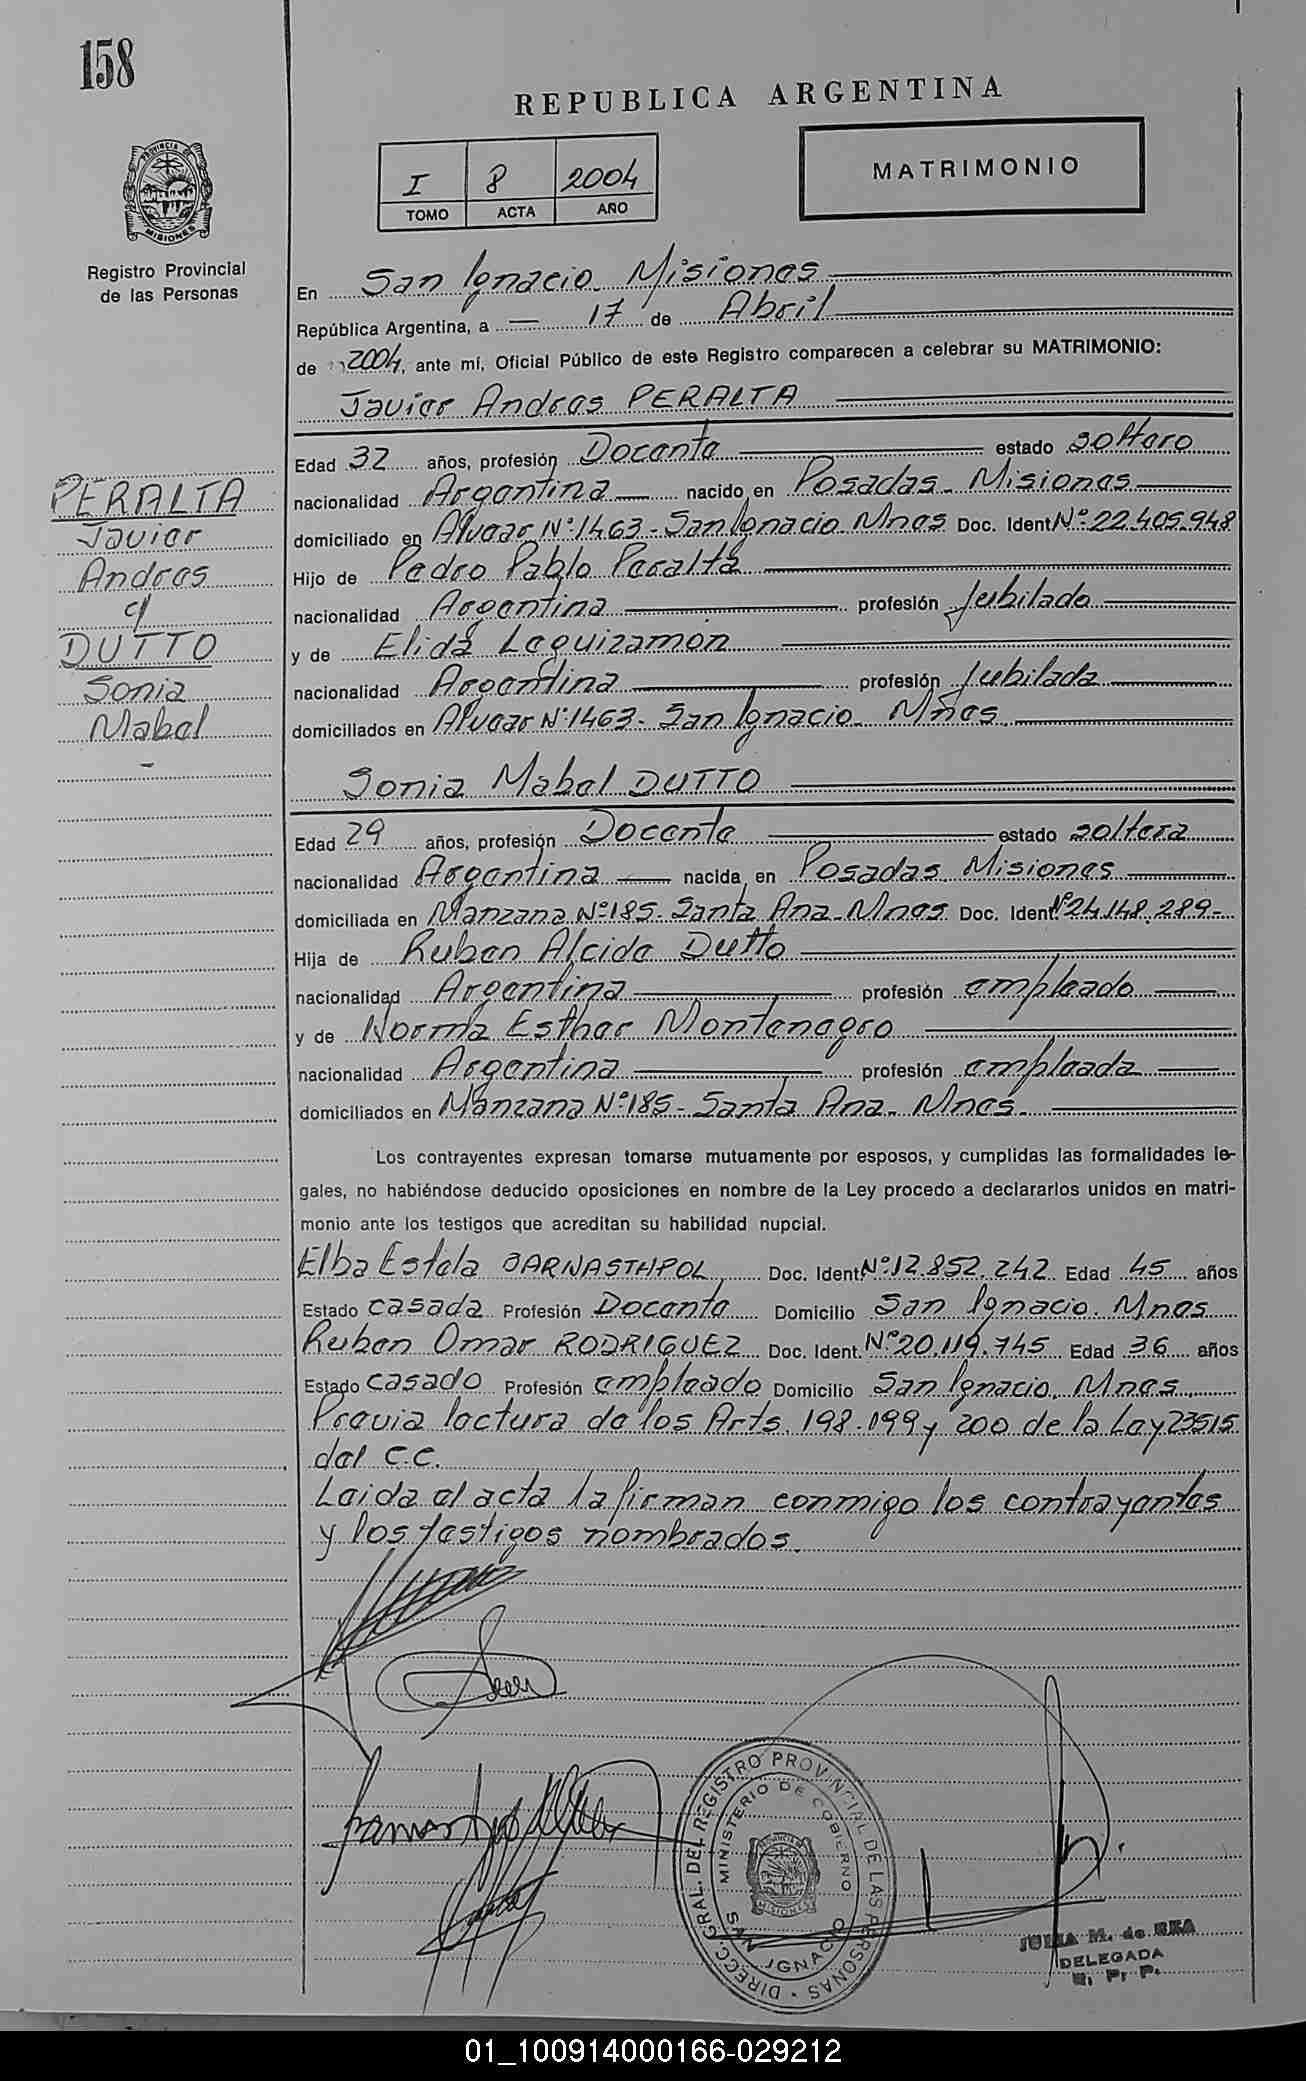 158
REPUBLICA ARGENTINA
I 8 2004
TOMO ACTA AÑO
MATRIMONIO
PROVINCIA DE
MISIONES
Registro Provincial
de las Personas
En San Ignacio. Misiones
República Argentina, a — 17 de Abril
de 2004, ante mí, Oficial Público de este Registro comparecen a celebrar su MATRIMONIO:
Javier Andres PERALTA
PERALTA
Javier
Andres
c/
DUTTO
Sonia
Mabel
-
Edad 32 años, profesión Docente estado soltero
nacionalidad Argentina nacido en Posadas - Misiones
domiciliado en Alvear Nº 1463 - San Ignacio Mnes Doc. Ident Nº 22.405.948
Hijo de Pedro Pablo Peralta
nacionalidad Argentina profesión Jubilado
y de Elida Leguizamón
nacionalidad Argentina profesión Jubilada
domiciliados en Alvear Nº 1463 - San Ignacio - Mnes
Sonia Mabel DUTTO
Edad 29 años, profesión Docente estado soltera
nacionalidad Argentina nacida en Posadas. Misiones
domiciliada en Manzana Nº 185 - Santa Ana - Mnes. Doc. Ident Nº 24.148.289-
Hija de Ruben Alcide Dutto
nacionalidad Argentina profesión empleado
y de Norma Esther Montenegro
nacionalidad Argentina profesión empleada
domiciliados en Manzana Nº 185 - Santa Ana - Mnes.
Los contrayentes expresan tomarse mutuamente por esposos, y cumplidas las formalidades le-
gales, no habiéndose deducido oposiciones en nombre de la Ley procedo a declararlos unidos en matri-
monio ante los testigos que acreditan su habilidad nupcial.
Elba Estela Doc. Ident. Nº 12.852.242 Edad 45 años
Estado casada Profesión Docente Domicilio San Ignacio. Mnes
Ruben Omar RODRIGUEZ Doc. Ident. Nº 20.119.745 Edad 36 años
Estado casado Profesión empleado Domicilio San Ignacio. Mnes
Previa lectura de los Arts. 198.199 y 200 de la Ley 23515
del C.C.
Leida el acta la firman conmigo los contrayentes
y los testigos nombrados.
DIRECC. GRAL. DEL REGISTRO PROVINCIAL DE LAS PERSONAS
MINISTERIO DE GOBIERNO
SAN IGNACIO
MISIONES
JULIA M. de
DELEGADA
R. P. P.
01_100914000166-029212